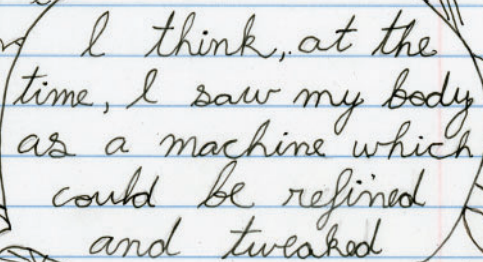 I think, at the
time, I saw my body
as a machine which
could be refined
and tweaked